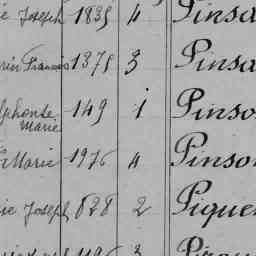 ie Joseph 1835 4 Pinsa
rin François 1375 3 Pinsa
lphonse Marie 149 1 Pinso
Marie 1976 4 Pinso
ie Joseph 828 2 Pique